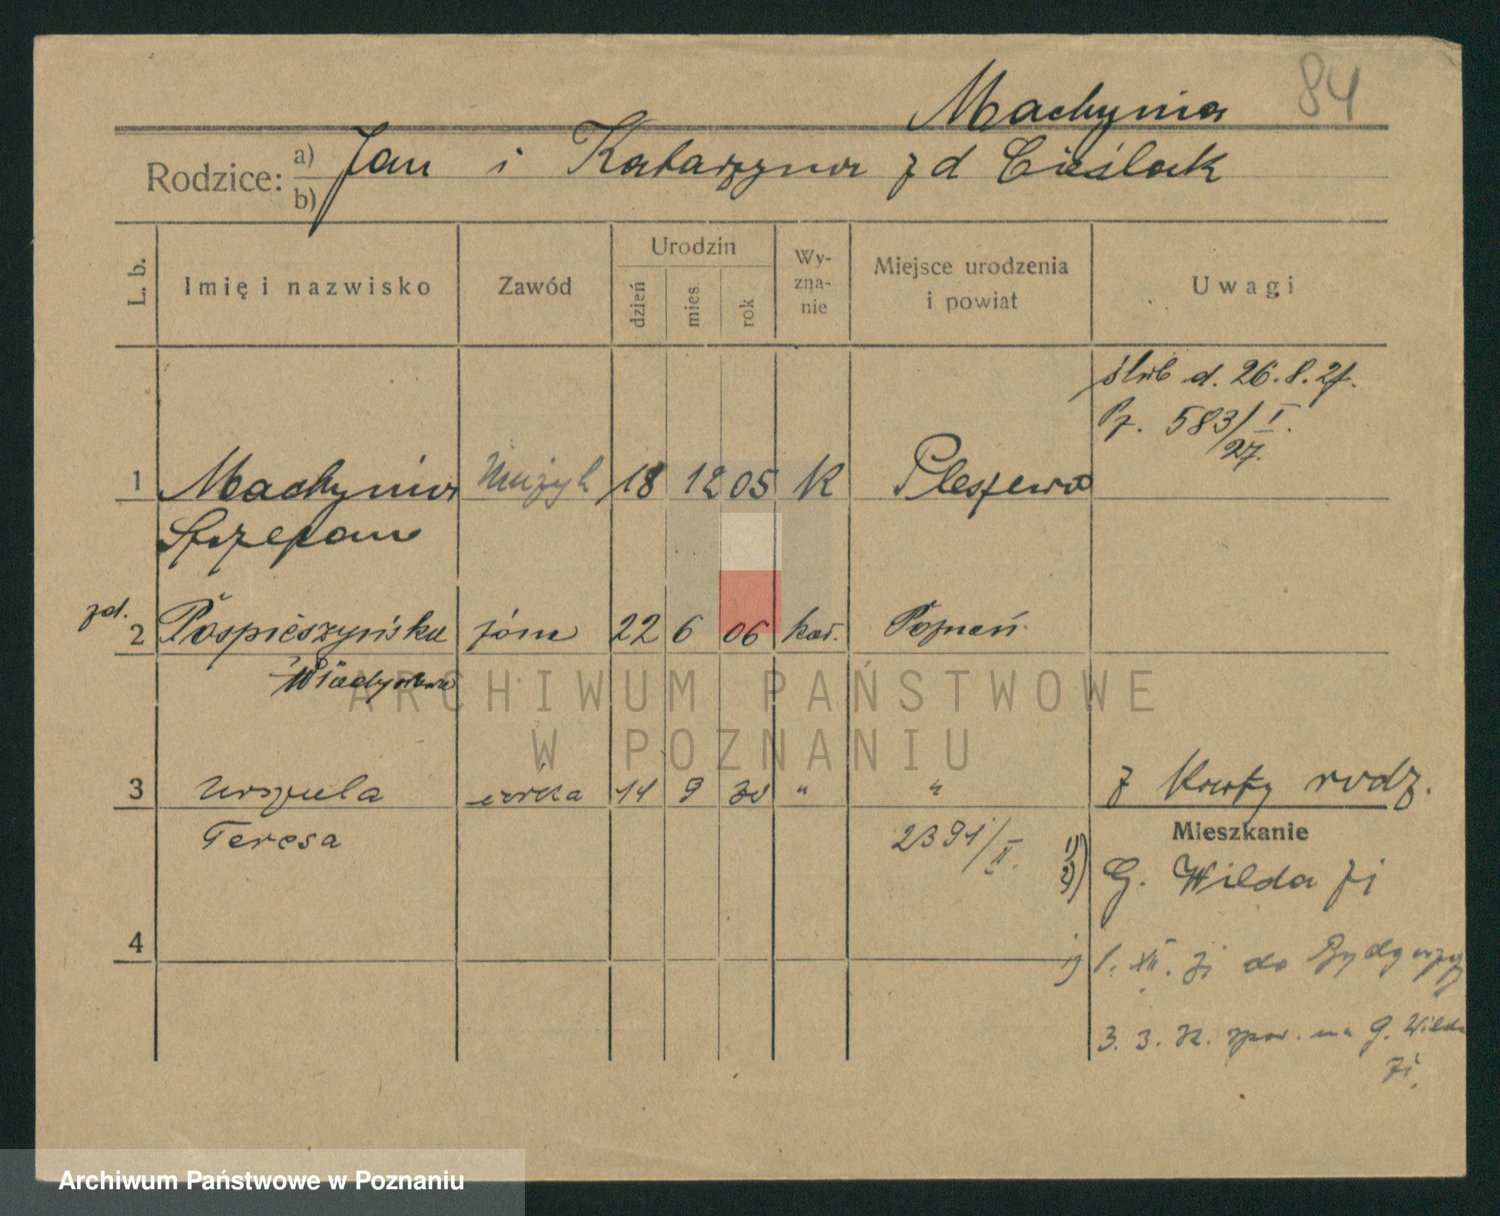 84
Machynia
Rodzice: a) Jan i Katarzyna zd Cieślak
b)
L. b.
Imię i nazwisko
Zawód
Urodzin
dzień
mies.
rok
Wy-
zna-
nie
Miejsce urodzenia
i powiat
Uwagi
ślub d. 26.8.27.
Pz. 583/I.
27.
1 Machynia muzyk 18 12 05 K Pleszewo
Szczepan
zd.
2 Pospieszyńska żona 22 6 06 kat. Poznań
Władysława
ARCHIWUM PAŃSTWOWE
W POZNANIU
3 Urszula córka 14 9 30 " " z Karty rodz.
Teresa 2391/II.
Mieszkanie
1)
2) G. Wilda 71
4
1. XII. 31 do Bydgoszczy
3. 3. 32. spow. na G. Wilda
71.
Archiwum Państwowe w Poznaniu